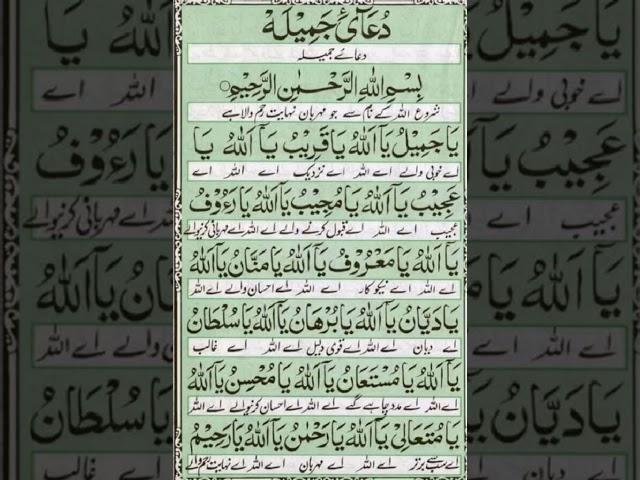 دُعَائے جَمِیْلَہ
دعائے جمیلہ
بِسْمِ اللّٰهِ الرَّحْمٰنِ الرَّحِيْمِ
شروع اللہ کے نام سے جو مہربان نہایت رحم والا ہے
يَا جَمِيْلُ يَآ اَللّٰهُ يَا قَرِيْبُ يَآ اَللّٰهُ يَا
اے خوبی والے اے اللہ اے نزدیک اے اللہ اے
عَجِيْبُ يَآ اَللّٰهُ يَا مُجِيْبُ يَآ اَللّٰهُ يَا رَءُوْفُ
عجیب اے اللہ اے قبول کرنے والے اے اللہ اے مہربانی کرنیوالے
يَآ اَللّٰهُ يَا مَعْرُوْفُ يَآ اَللّٰهُ يَا مَنَّانُ يَآ اَللّٰهُ
اے اللہ اے نیکوکار اے اللہ اے احسان والے اے اللہ
يَا دَيَّانُ يَآ اَللّٰهُ يَا بُرْهَانُ يَآ اَللّٰهُ يَا سُلْطَانُ
اے دیان اے اللہ اے قوی دلیل اے اللہ اے غالب
يَآ اَللّٰهُ يَا مُسْتَعَانُ يَآ اَللّٰهُ يَا مُحْسِنُ يَآ اَللّٰهُ
اے اللہ اے مدد چاہے گئے اے اللہ اے احسان کرنیوالے اے اللہ
يَا مُتَعَالِیْ يَآ اَللّٰهُ يَا رَحْمٰنُ يَآ اَللّٰهُ يَا رَحِيْمُ
اے سب سے برتر اے اللہ اے مہربان اے اللہ اے نہایت رحم والے